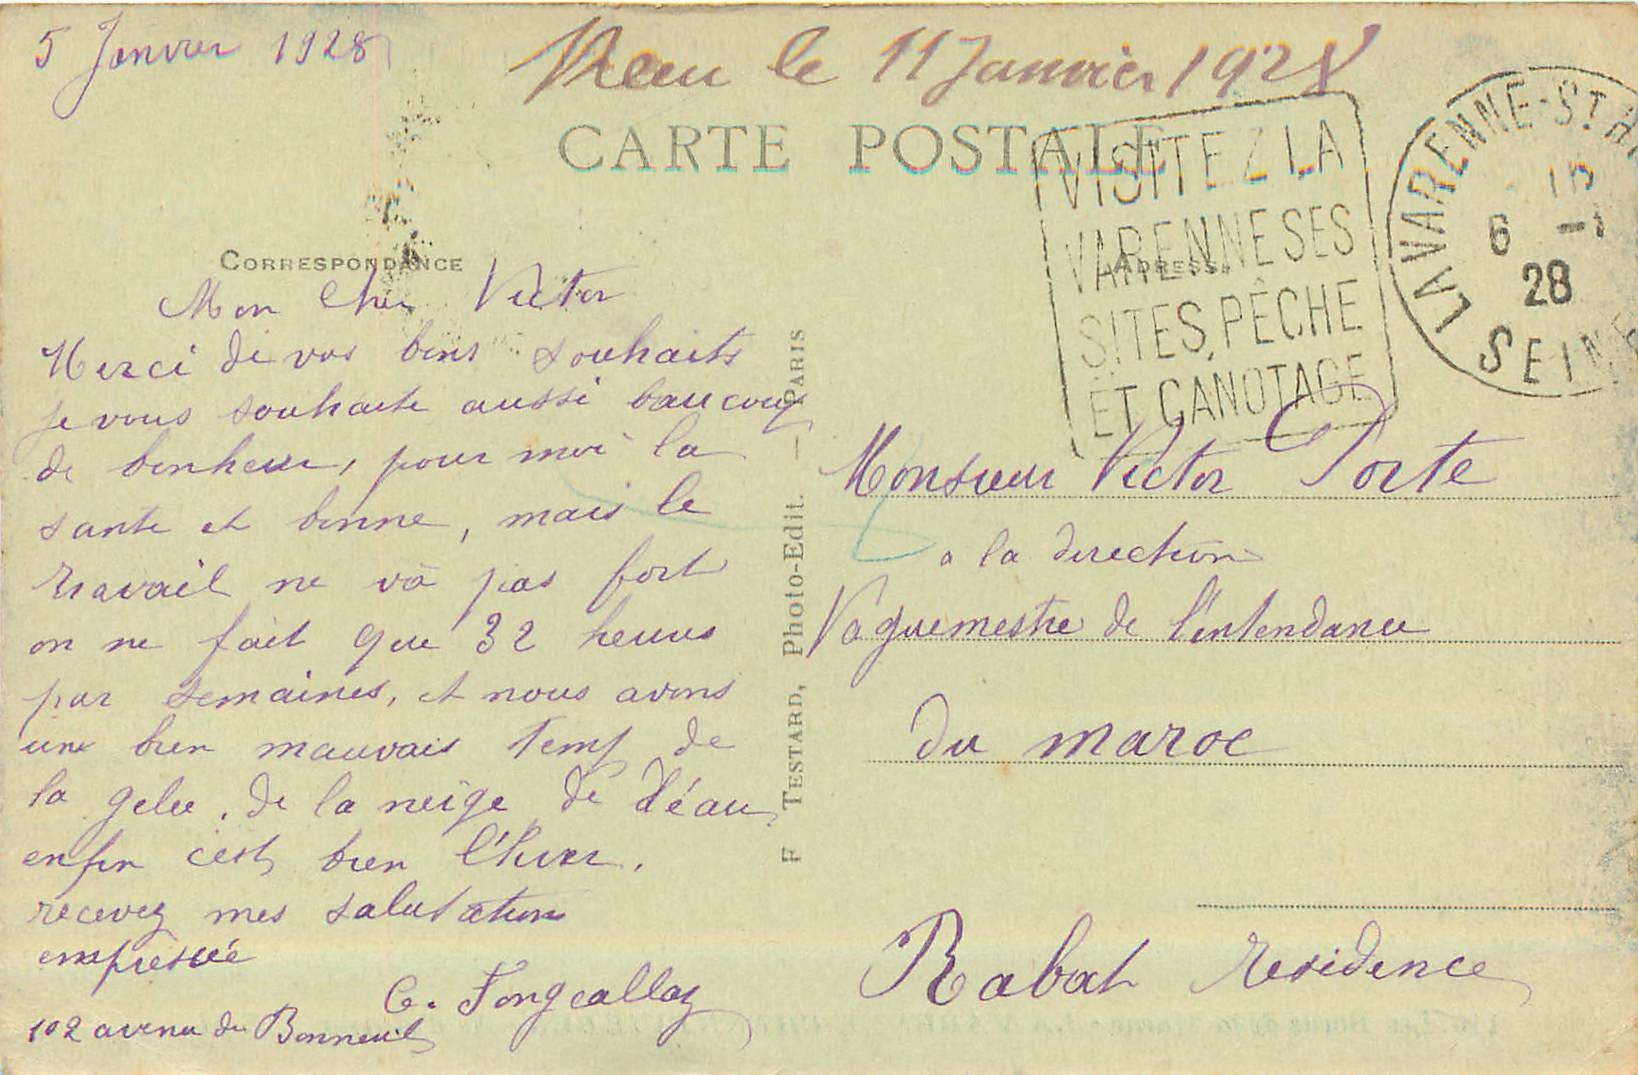 5 Janvier 1928
Recu le 11 Janvier 1928
CARTE POSTALE
CORRESPONDANCE
ADRESSE
VISITEZ LA
VARENNE SES
SITES, PÊCHE
ET CANOTAGE
LA VARENNE-ST. H
6 -1
28
SEINE
Mon Cher Victor
Merci de vos bons souhaits
je vous souhaite aussi baucoup
de bonheur, pour moi la
sante et bonne, mais le
travail ne va pas fort
on ne fait que 32 heures
par semaines, et nous avons
une bien mauvais temps de
la gelee, de la neige de d'éau,
enfin cest bien l'hiver.
recevez mes salutations
empressée
C. Fongeallaz
102 avenu du Bonneuil
F TESTARD, Photo-Edit. — PARIS
Monsieur Victor Porte
a la direction
Vaguemestre de l'intendance
du maroc
Rabat residence